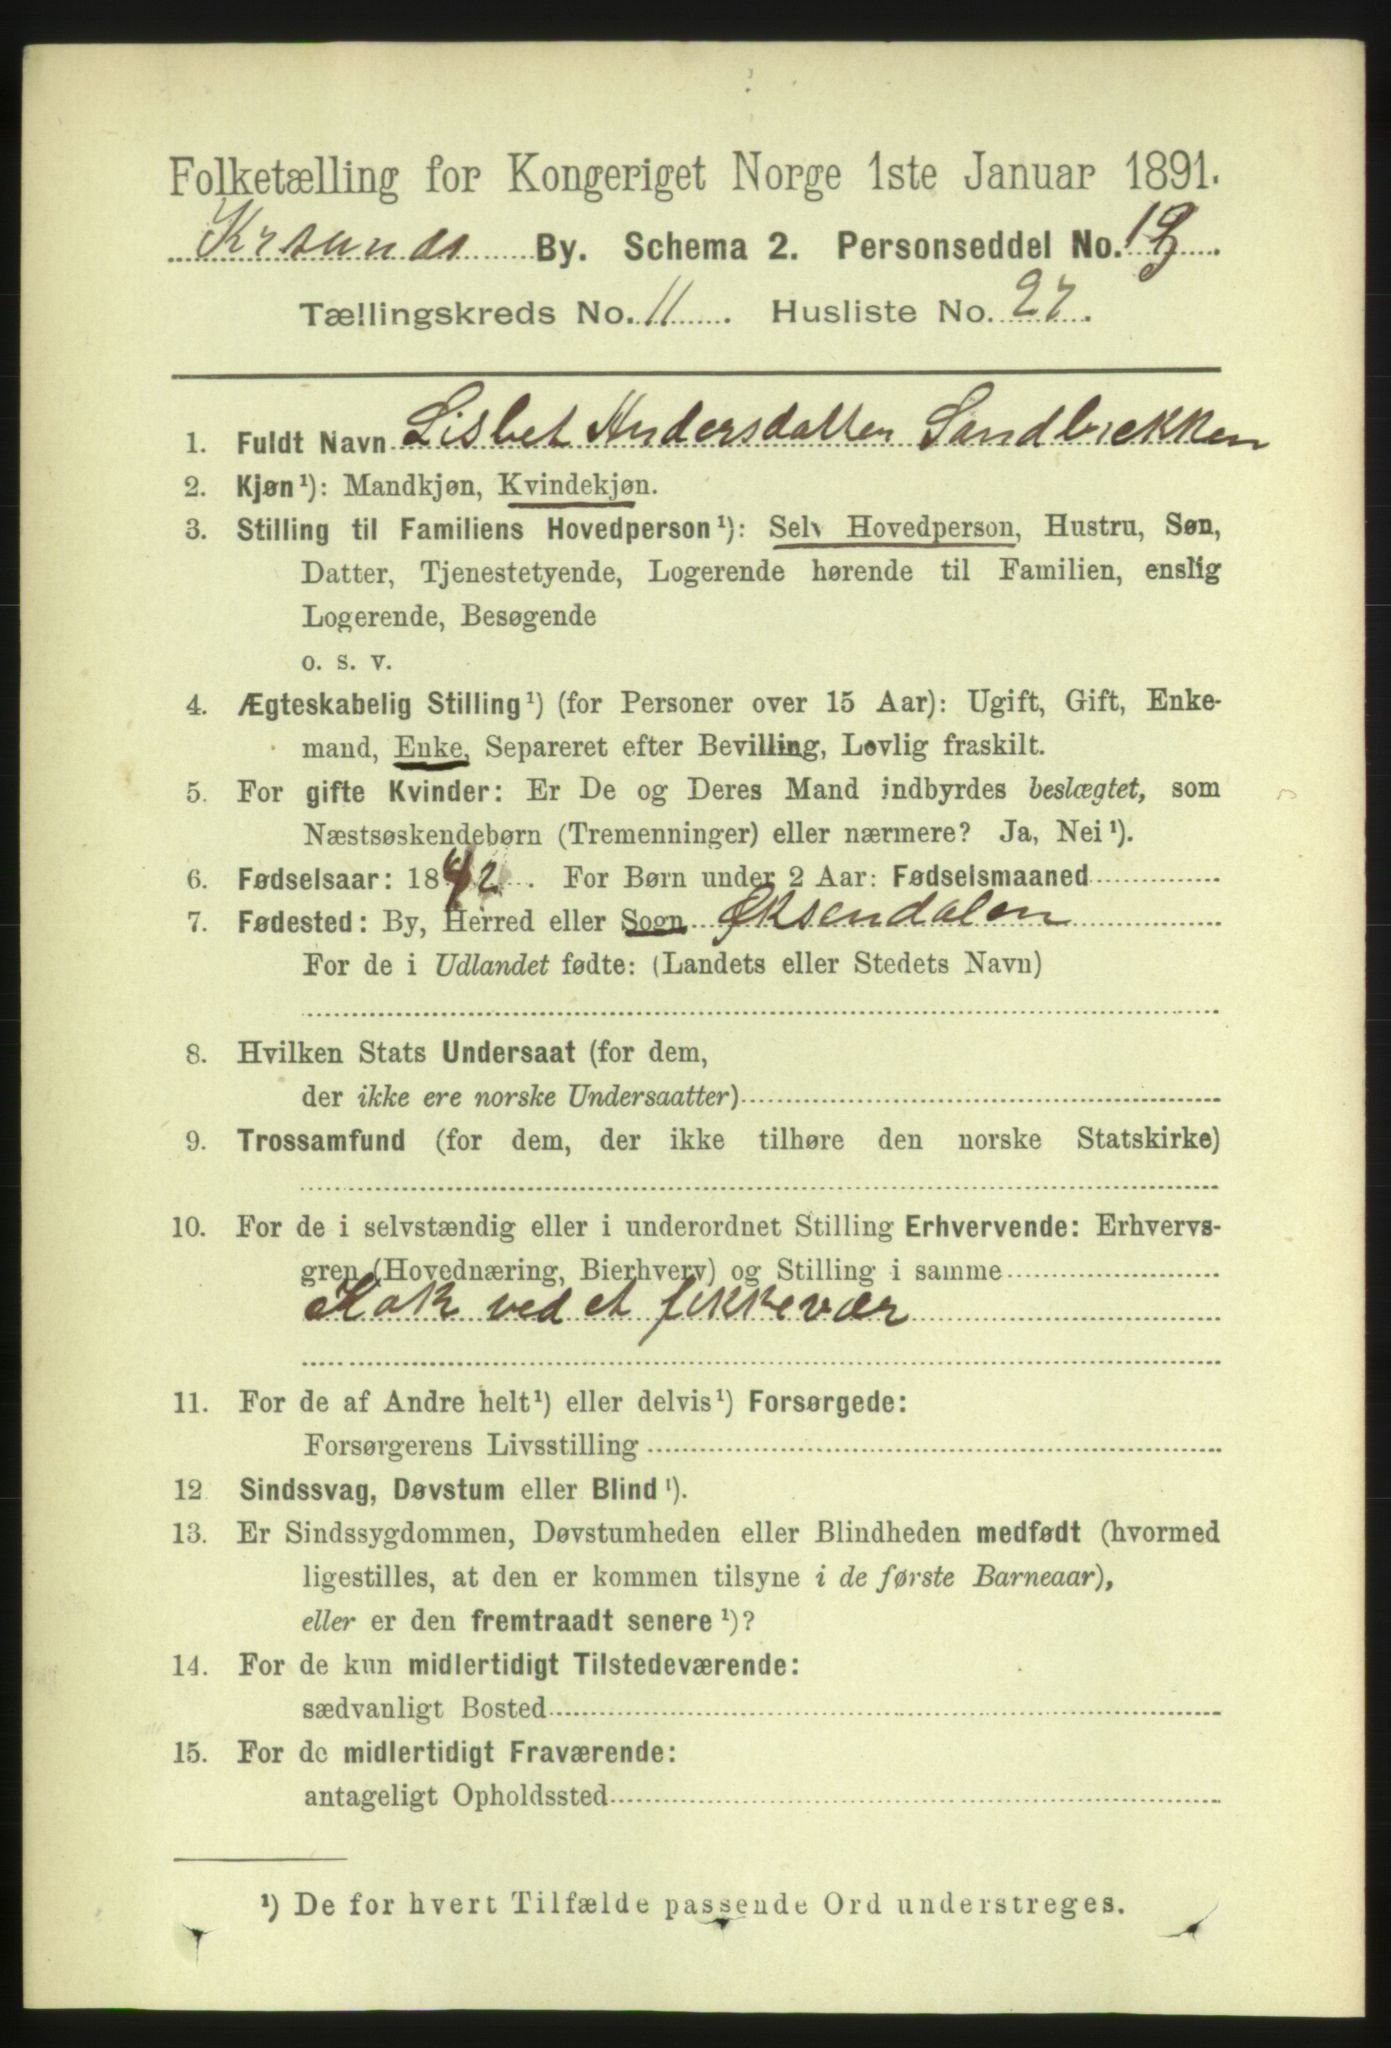 Folketælling for Kongeriget Norge 1ste Januar 1891.
Krsunds By. Schema 2. Personseddel No.
Tællingskreds No. 11 Husliste No. 27.
1. Fuldt Navn Lisbet Andersdatter Sandbrekken
2. Kjøn¹): Mandkjøn, Kvindekjøn.
3. Stilling til Familiens Hovedperson¹): Selv Hovedperson, Hustru, Søn,
Datter, Tjenestetyende, Logerende hørende til Familien, enslig
Logerende, Besøgende
o. s. v.
4. Ægteskabelig Stilling¹) (for Personer over 15 Aar): Ugift, Gift, Enke-
mand, Enke, Separeret efter Bevilling, Lovlig fraskilt.
5. For gifte Kvinder: Er De og Deres Mand indbyrdes beslægtet, som
Næstsøskendebørn (Tremenninger) eller nærmere? Ja, Nei¹).
6. Fødselsaar: 1842. For Børn under 2 Aar: Fødselsmaaned
7. Fødested: By, Herred eller Sogn Øksendalen
For de i Udlandet fødte: (Landets eller Stedets Navn)
8. Hvilken Stats Undersaat (for dem,
der ikke ere norske Undersaatter)
9. Trossamfund (for dem, der ikke tilhøre den norske Statskirke)
10. For de i selvstændig eller i underordnet Stilling Erhvervende: Erhvervs-
gren (Hovednæring, Bierhverv) og Stilling i samme
Kok ved et fikkevær
11. For de af Andre helt¹) eller delvis¹) Forsørgede:
Forsørgerens Livsstilling
12 Sindssvag, Døvstum eller Blind¹).
13. Er Sindssygdommen, Døvstumheden eller Blindheden medfødt (hvormed
ligestilles, at den er kommen tilsyne i de første Barneaar),
eller er den fremtraadt senere¹)?
14. For de kun midlertidigt Tilstedeværende:
sædvanligt Bosted
15. For de midlertidigt Fraværende:
antageligt Opholdssted
¹) De for hvert Tilfælde passende Ord understreges.